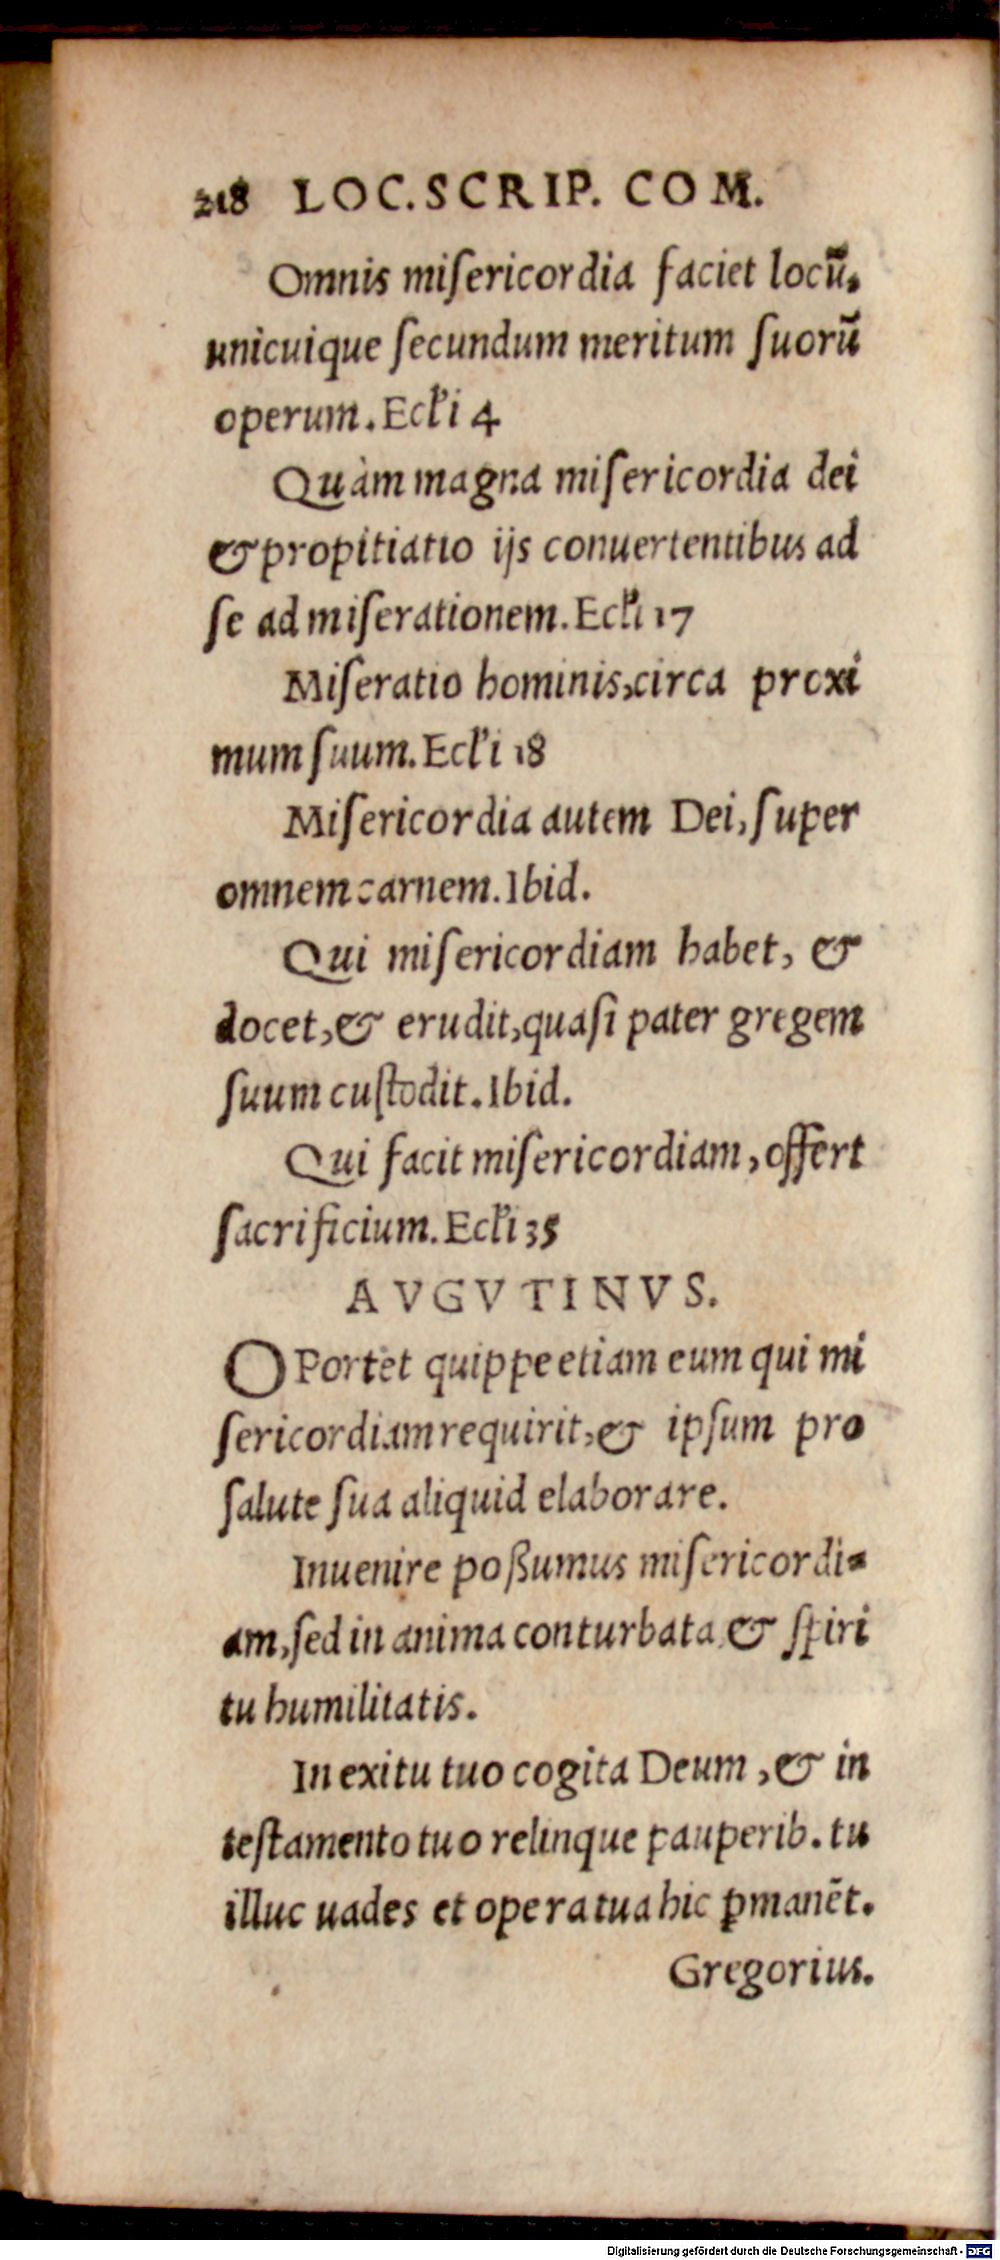 218 LOC. SCRIP. COM.
Omnis miſericordia faciet locũ.
unicuique ſecundum meritum ſuorũ
operum. Ecl'i 4
Quàm magna miſericordia dei
& propitiatio ijs conuertentibus ad
ſe ad miſerationem. Ecl'i 17
Miſeratio hominis, circa proxi
mum ſuum. Ecl'i 18
Miſericordia autem Dei, ſuper
omnem carnem. Ibid.
Qui miſericordiam habet, &
docet, & erudit, quaſi pater gregem
ſuum cuſtodit. Ibid.
Qui facit miſericordiam, offert
ſacrificium. Ecl'i 35
AVGVTINVS.
OPortet quippe etiam eum qui mi
ſericordiam requirit, & ipſum pro
ſalute ſua aliquid elaborare.
Inuenire poßumus miſericordi-
am, ſed in anima conturbata & ſpiri
tu humilitatis.
In exitu tuo cogita Deum, & in
teſtamento tuo relinque pauperib. tu
illuc uades et opera tua hic ꝑmanẽt.
Gregorius.
Digitalisierung gefördert durch die Deutsche Forschungsgemeinschaft - DFG